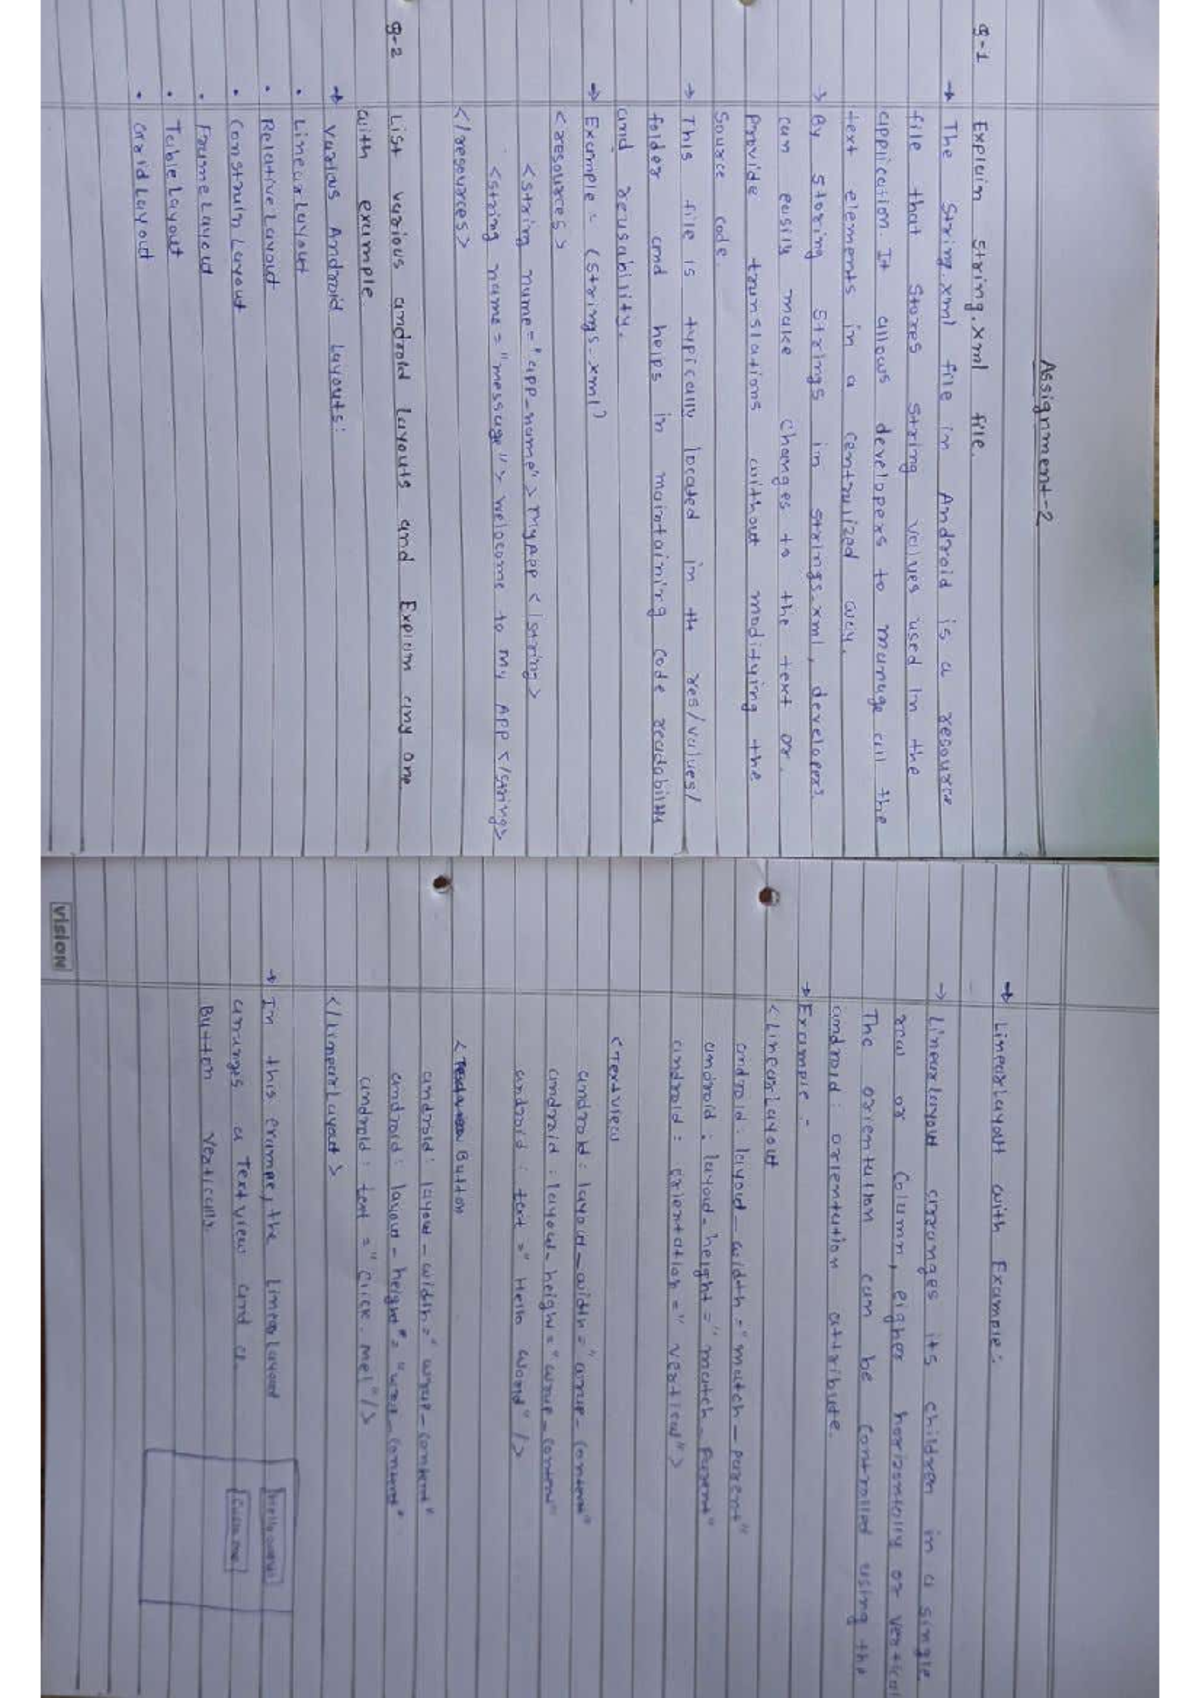 Assignment-2
Q-1 Explain string.xml file.
→ The String.xml file in Android is a resource
file that stores string values used in the
application. It allows developers to manage all the
text elements in a centralized way.
→ By storing strings in strings.xml, developers
can easily make changes to the text or
Provide translations without modifying the
Source code.
→ This file is typically located in the res/values/
folder and helps in maintaining code readability
and reusability.
→ Example = (strings.xml)
<resources>
<string name="app_name">MyApp</string>
<string name="message">Welocome to My APP</string>
</resources>
Q-2 List various android layouts and Explain any one
with example.
→ Various Android Layouts:
• LinearLayout
• RelativeLayout
• ConstrainLayout
• FrameLayout
• TableLayout
• GridLayout
→ LinearLayout with Example:
→ Linearlayout arranges its children in a single
row or Column, eigher horizontally or vertical
The orientation can be Controlled using the
android: orientation attribute.
→ Example :-
<LinearLayout
android: layout_width="match_parent"
android: layout_height="match_parent"
android: orientation="vertical">
<TextView
android: layout_width="wrap_content"
android: layout_height="wrap_content"
android: text="Hello World"/>
<Button
android: layout_width="wrap_content"
android: layout_height"="wrap_content"
android: text="Click Me!"/>
</LinearLayout>
→ In this exampe, the LinearLayout
arranges a TextView and a
Button Vertically.
Hello world
Click me
vision